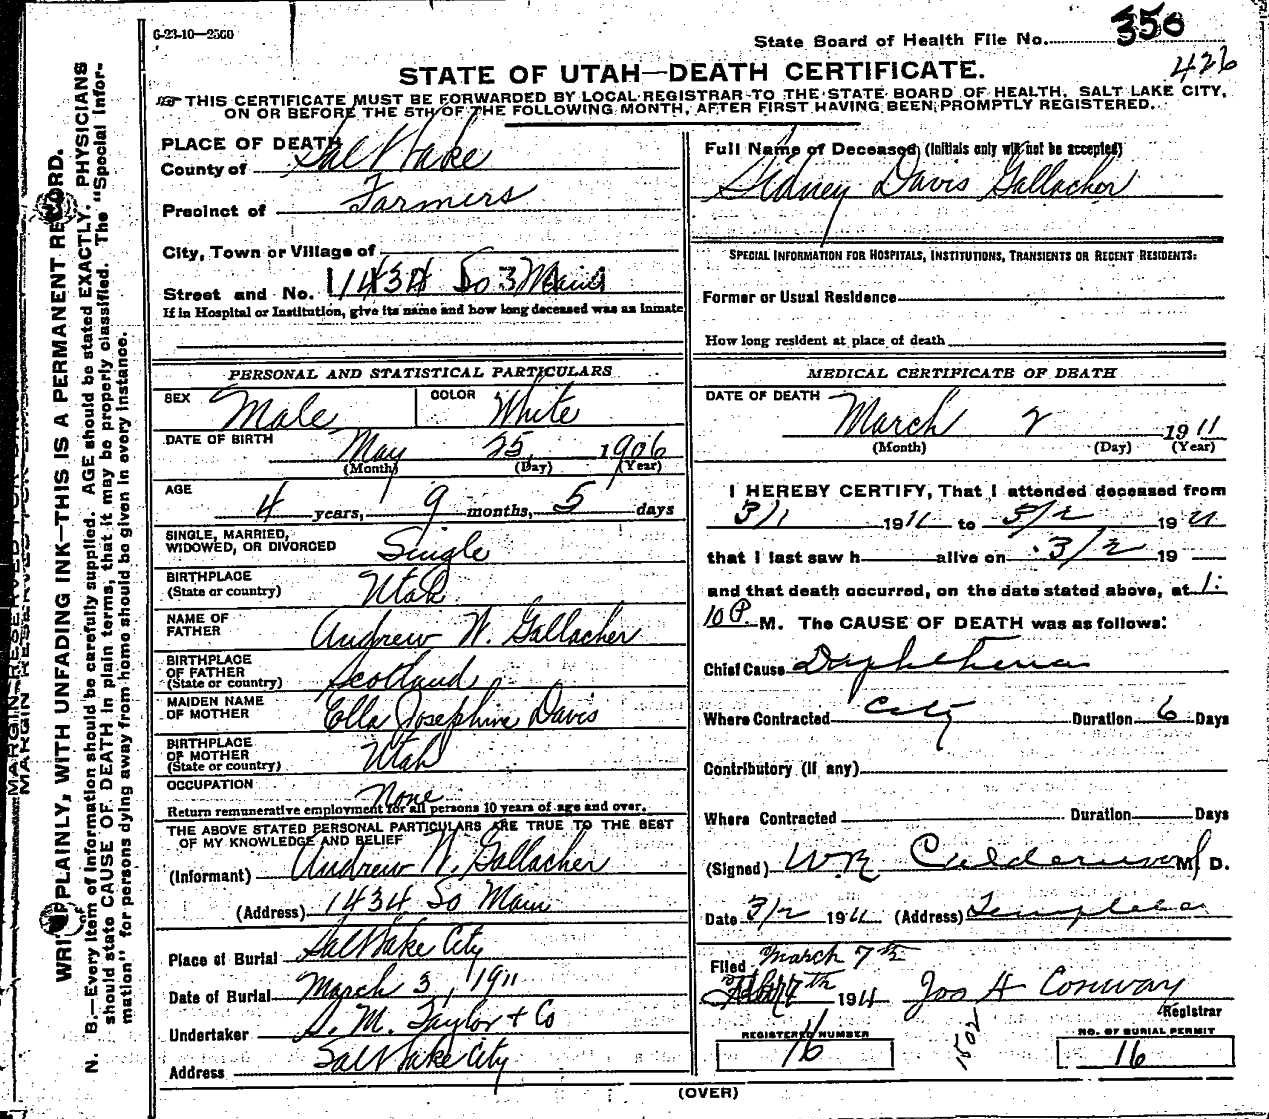 6-23-10—2500
State Board of Health File No. 350
426
STATE OF UTAH—DEATH CERTIFICATE.
THIS CERTIFICATE MUST BE FORWARDED BY LOCAL REGISTRAR TO THE STATE BOARD OF HEALTH, SALT LAKE CITY,
ON OR BEFORE THE 5TH OF THE FOLLOWING MONTH, AFTER FIRST HAVING BEEN PROMPTLY REGISTERED.
PLACE OF DEATH
County of Salt Lake
Precinct of Farmers
City, Town or Village of
Street and No. 1434 So Main
If in Hospital or Institution, give its name and how long deceased was as inmate
PERSONAL AND STATISTICAL PARTICULARS
SEX Male COLOR White
DATE OF BIRTH May 25, 1906
(Month) (Day) (Year)
AGE 4 years, 9 months, 5 days
SINGLE, MARRIED,
WIDOWED, OR DIVORCED Single
BIRTHPLACE
(State or country) Utah
NAME OF
FATHER Andrew W. Gallacher
BIRTHPLACE
OF FATHER
(State or country) Scotland
MAIDEN NAME
OF MOTHER Ella Josephine Davis
BIRTHPLACE
OF MOTHER
(State or country) Utah
OCCUPATION None
Return remunerative employment for all persons 10 years of age and over.
THE ABOVE STATED PERSONAL PARTICULARS ARE TRUE TO THE BEST
OF MY KNOWLEDGE AND BELIEF
(Informant) Andrew W. Gallacher
(Address) 1434 So Main
Place of Burial Salt Lake City
Date of Burial March 3, 1911
Undertaker S. M. Taylor + Co
Address Salt Lake City
Full Name of Deceased (Initials only will not be accepted)
Sidney Davis Gallacher
SPECIAL INFORMATION FOR HOSPITALS, INSTITUTIONS, TRANSIENTS OR RECENT RESIDENTS:
Former or Usual Residence
How long resident at place of death
MEDICAL CERTIFICATE OF DEATH
DATE OF DEATH March 2 1911
(Month) (Day) (Year)
I HEREBY CERTIFY, That I attended deceased from
3/1 1911 to 3/2 1911
that I last saw h alive on 3/2 19
and that death occurred, on the date stated above, at 1:
10 P. M. The CAUSE OF DEATH was as follows:
Chief Cause Diphtheria
Where Contracted City Duration 6 Days
Contributory (if any)
Where Contracted Duration Days
(Signed) M. D.
Date 3/2 1911 (Address)
Filed March 7th
1911 Jos H Conway
Registrar
REGISTERED NUMBER
16
1502
NO. OF BURIAL PERMIT
16
(OVER)
MARGIN RESERVED FOR
WRITE PLAINLY, WITH UNFADING INK—THIS IS A PERMANENT RECORD.
N. B.—Every item of information should be carefully supplied. AGE should be stated EXACTLY. PHYSICIANS
should state CAUSE OF DEATH in plain terms, that it may be properly classified. The "Special Infor-
mation" for persons dying away from home should be given in every instance.